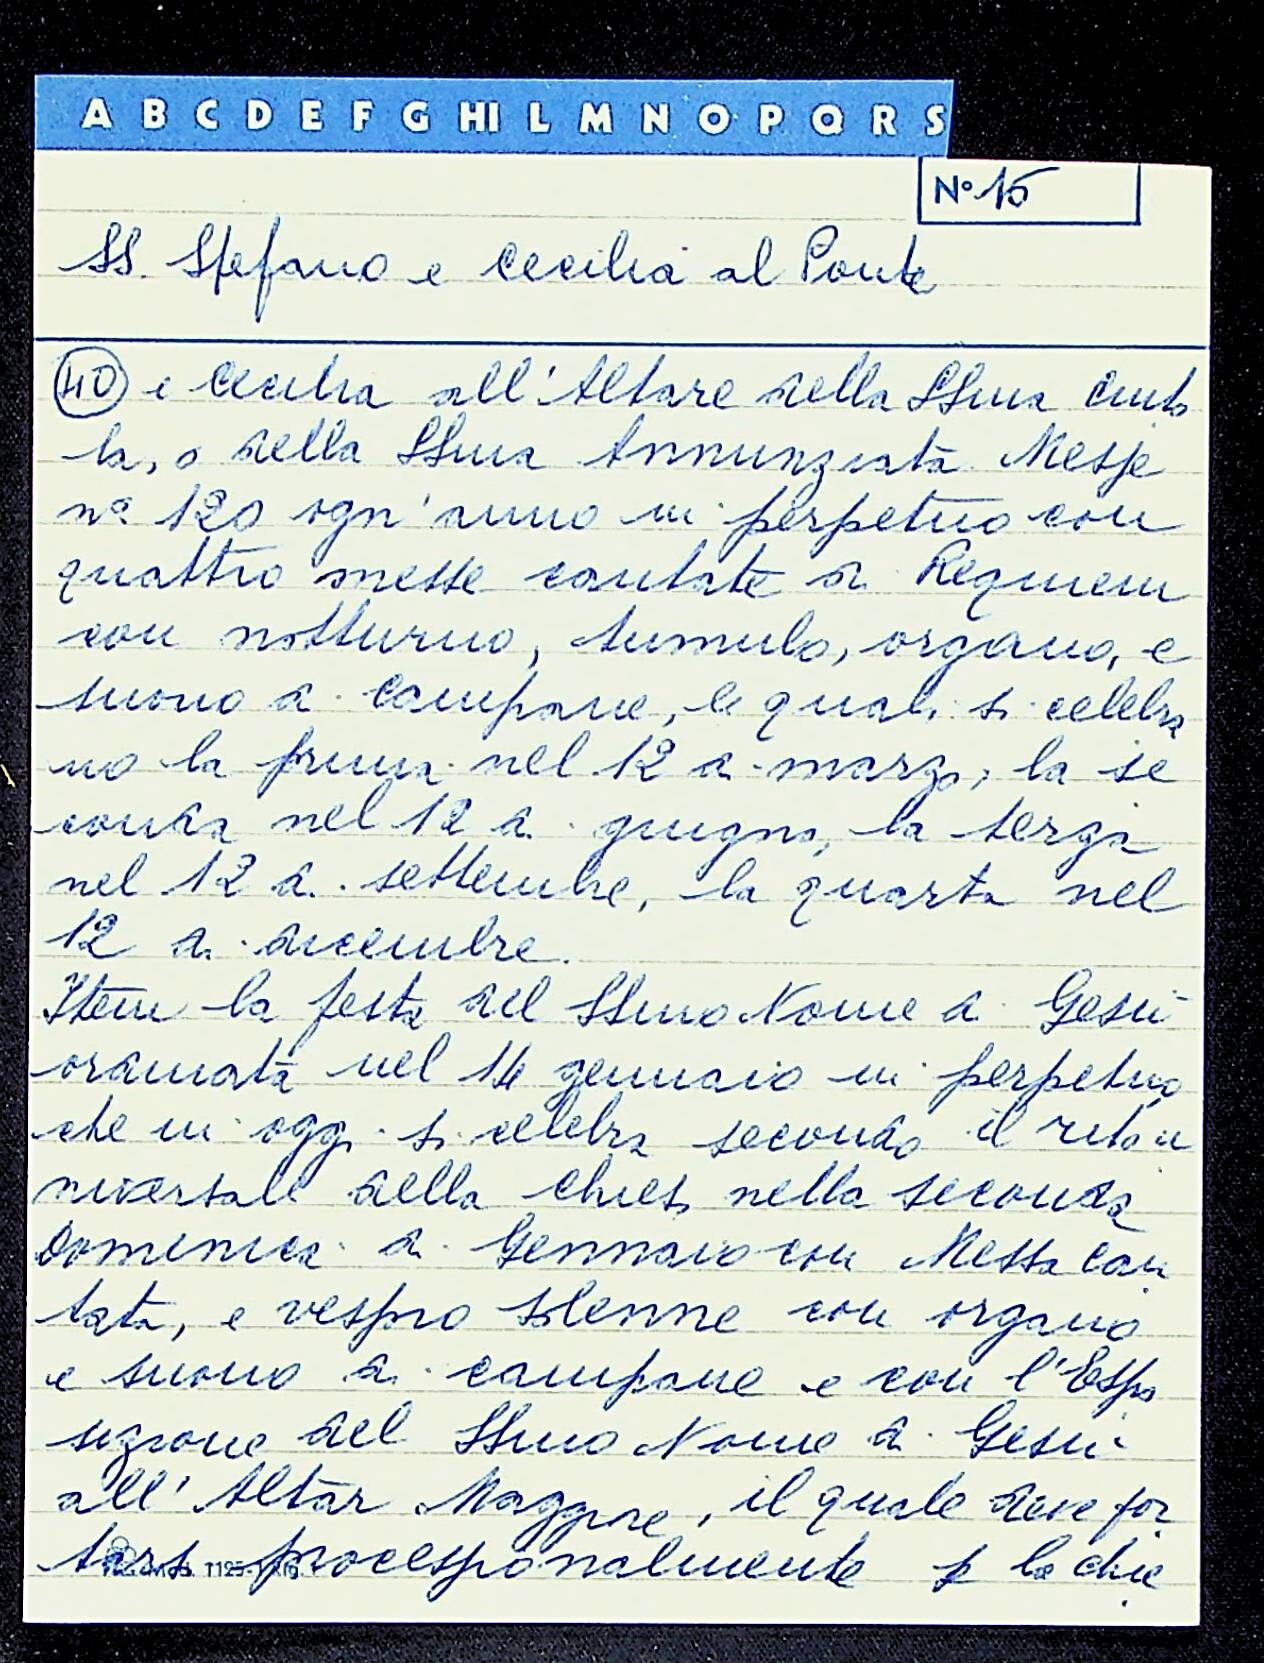 A B C D E F G HI L M N O P Q R S
N° 15
SS. Stefano e Cecilia al Ponte
40 e Cecilia all'Altare della SSma Cinto
la, o della SSma Annunziata Messe
n° 120 ogn'anno in perpetuo con
quattro messe cantate di Requiem
con notturno, tumulo, organo, e
suono di campane, le quali si celebra
no la prima nel 12 di marzo, la se
conda nel 12 di giugno, la terza
nel 12 di settembre, la quarta nel
12 di dicembre.
Item la festa del SSmo Nome di Gesù
ordinata nel 14 gennaio in perpetuo
che in oggi si celebra secondo il rito u
niversale della chiesa nella seconda
Domenica di Gennaio con Messa can
tata, e vespro solenne con organo
e suono di campane e con l'Espo
sizione del SSmo Nome di Gesù
all'Altar Maggiore, il quale deve por
tarsi processionalmente p la chie